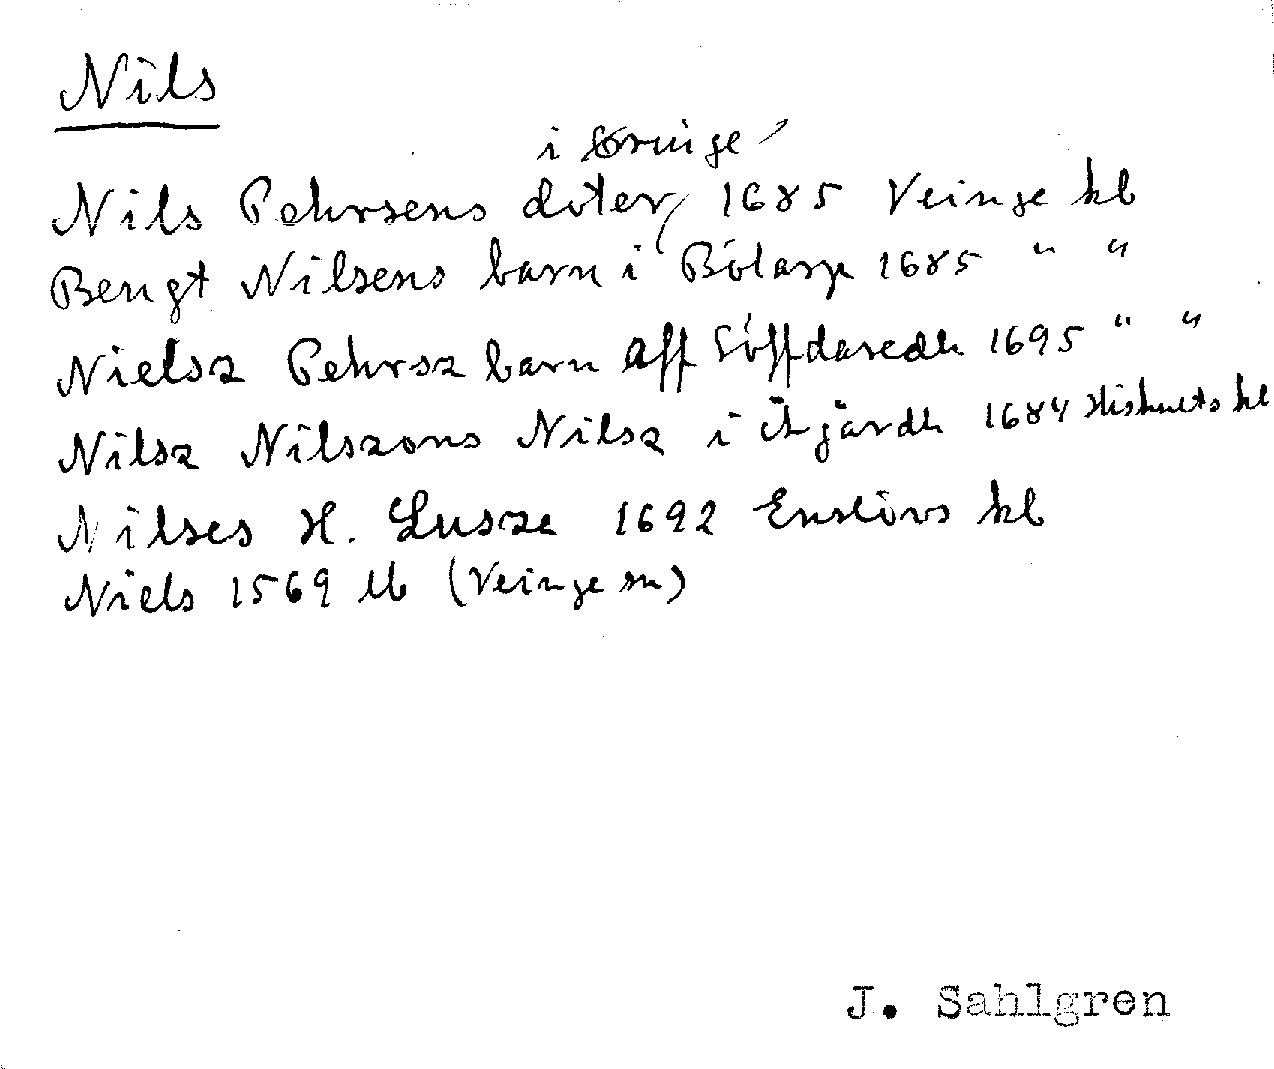 Nils
i Göringe
Nils Pehrsens doter, 1685 Veinge kb
Bengt Nilsens barn i Bölarp 1685 " "
Nielsz Pehrsz barn aff Söffdaredh 1695 " "
Nilsz Nilszons Nilsz i 1684 Hishults kb
Nilses H. Lusze 1692 Enslövs kb
Niels 1569 lb (Veinge sn)
J. Sahlgren